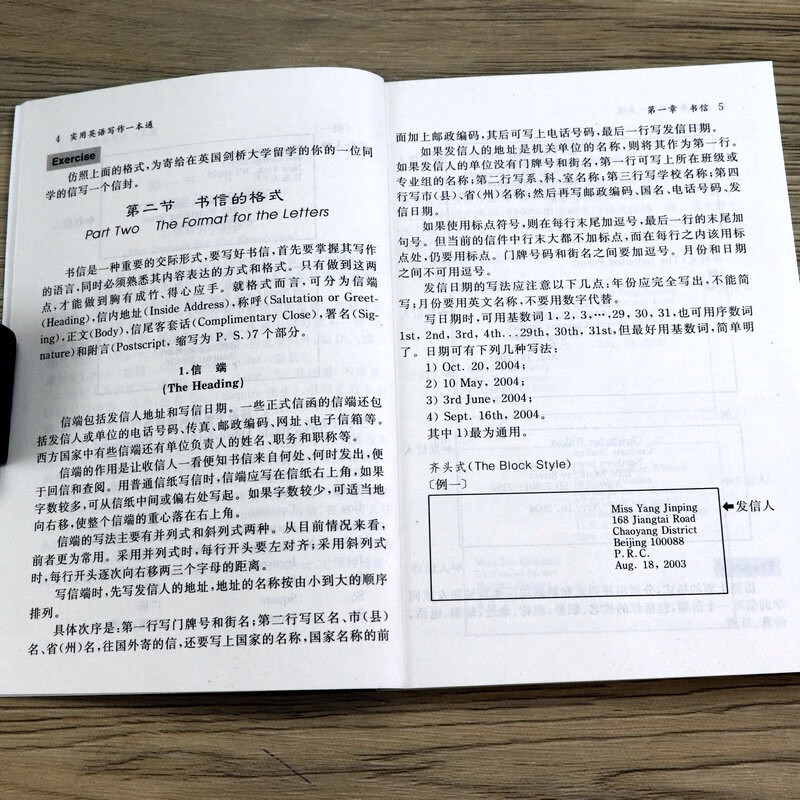 4 实用英语写作一本通
Exercise
仿照上面的格式,为寄给在英国剑桥大学留学的你的一位同
学的信写一个信封。
第二节 书信的格式
Part Two The Format for the Letters
书信是一种重要的交际形式,要写好书信,首先要掌握其写作
的语言,同时必须熟悉其内容表达的方式和格式。只有做到这两
点,才能做到胸有成竹、得心应手。就格式而言,可分为信端
(Heading),信内地址(Inside Address),称呼(Salutation or Greet-
ing),正文(Body),信尾客套话(Complimentary Close),署名(Sig-
nature)和附言(Postscript, 缩写为 P. S.)7个部分。
1.信 端
(The Heading)
信端包括发信人地址和写信日期。一些正式信函的信端还包
括发信人或单位的电话号码、传真、邮政编码、网址、电子信箱等。
西方国家中有些信端还有单位负责人的姓名、职务和职称等。
信端的作用是让收信人一看便知书信来自何处、何时发出,便
于回信和查阅。用普通信纸写信时,信端应写在信纸右上角,如果
字数较多,可从信纸中间或偏右处写起。如果字数较少,可适当地
向右移,使整个信端的重心落在右上角。
信端的写法主要有并列式和斜列式两种。从目前情况来看,
前者更为常用。采用并列式时,每行开头要左对齐;采用斜列式
时,每行开头逐次向右移两三个字母的距离。
写信端时,先写发信人的地址,地址的名称按由小到大的顺序
排列。
具体次序是:第一行写门牌号和街名;第二行写区名、市(县)
名、省(州)名,往国外寄的信,还要写上国家的名称,国家名称的前
第一章 书信 5
面加上邮政编码,其后可写上电话号码,最后一行写发信日期。
如果发信人的地址是机关单位的名称,则将其作为第一行。
如果发信人的单位没有门牌号和街名,第一行可写上所在班级或
专业组的名称;第二行写系、科、室名称;第三行写学校名称;第四
行写市(县)、省(州)名称;然后再写邮政编码、国名、电话号码、发
信日期。
如果使用标点符号,则在每行末尾加逗号,最后一行的末尾加
句号。但当前的信件中行末大都不加标点,而在每行之内该用标
点处,仍要用标点。门牌号码和街名之间要加逗号。月份和日期
之间不可用逗号。
发信日期的写法应注意以下几点:年份应完全写出,不能简
写;月份要用英文名称,不要用数字代替。
写日期时,可用基数词 1, 2, 3,…,29, 30, 31,也可用序数词
1st, 2nd, 3rd, 4th...29th, 30th, 31st,但最好用基数词,简单明
了。日期可有下列几种写法:
1) Oct. 20, 2004;
2) 10 May, 2004;
3) 3rd June, 2004;
4) Sept. 16th, 2004。
其中 1)最为通用。
齐头式(The Block Style)
〔例一〕
Miss Yang Jinping
168 Jiangtai Road
Chaoyang District
Beijing 100088
P. R. C.
Aug. 18, 2003
发信人